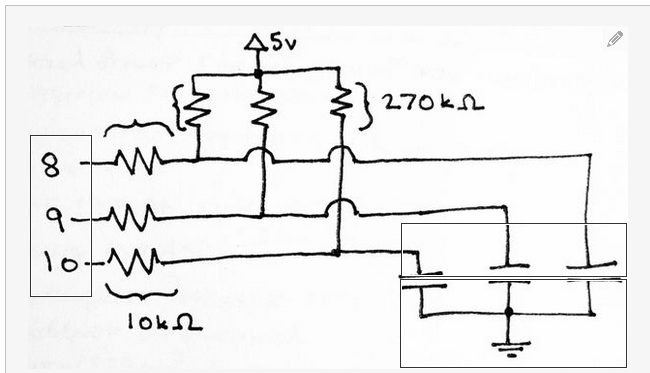 5v
270kΩ
8
9
10
10kΩ